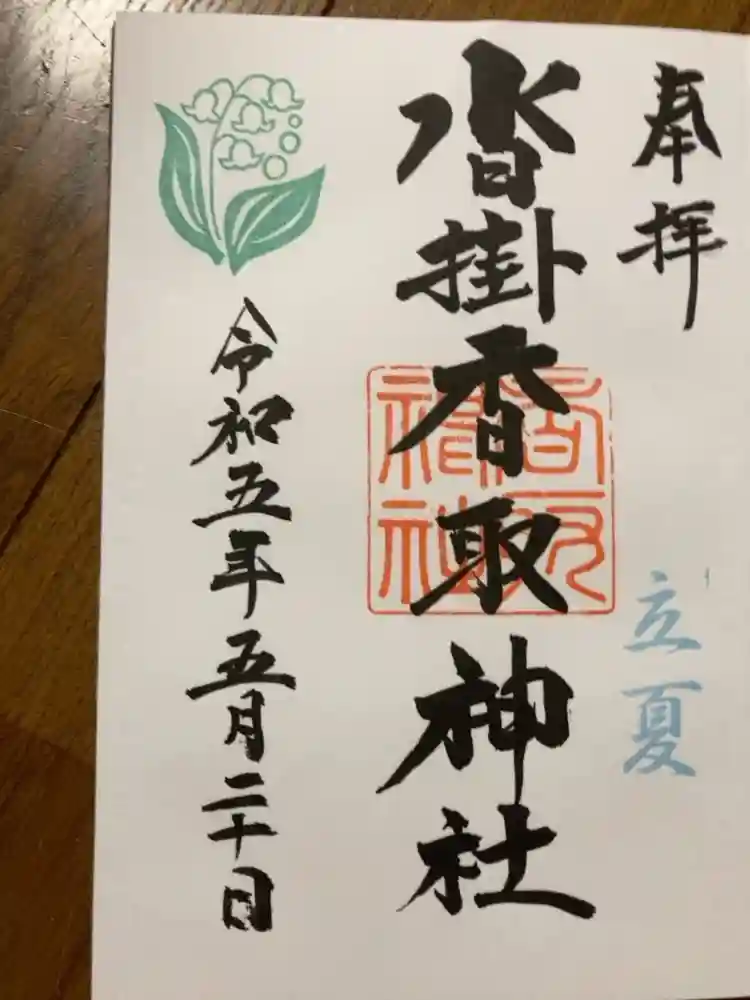 奉拝
立夏
沓掛香取神社
香取
神社
令和五年五月二十日